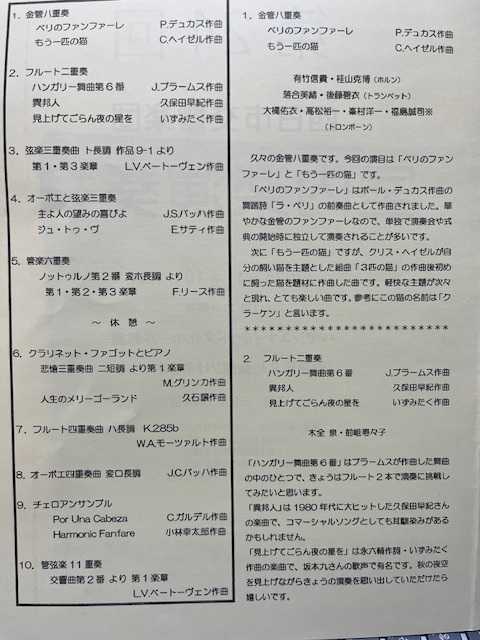 1. 金管八重奏
ペリのファンファーレ P.デュカス作曲
もう一匹の猫 C.ヘイゼル作曲
2. フルート二重奏
ハンガリー舞曲第6番 J.ブラームス作曲
異邦人 久保田早紀作曲
見上げてごらん夜の星を いずみたく作曲
3. 弦楽三重奏曲 ト長調 作品9-1より
第1・第3楽章 L.V.ベートーヴェン作曲
4. オーボエと弦楽三重奏
主よ人の望みの喜びよ J.S.バッハ作曲
ジュ・トゥ・ヴ E.サティ作曲
5. 管楽六重奏
ノットゥルノ第2番 変ホ長調 より
第1・第2・第3楽章 F.リース作曲
～ 休 憩 ～
6. クラリネット・ファゴットとピアノ
悲愴三重奏曲 ニ短調 より第1楽章
M.グリンカ作曲
人生のメリーゴーランド 久石譲作曲
7. フルート四重奏曲 ハ長調 K.285b
W.A.モーツァルト作曲
8. オーボエ四重奏曲 変ロ長調 J.C.バッハ作曲
9. チェロアンサンブル
Por Una Cabeza C.ガルデル作曲
Harmonic Fanfare 小林幸太郎作曲
10. 管弦楽11重奏
交響曲第2番 より 第1楽章
L.V.ベートーヴェン作曲
1. 金管八重奏
ペリのファンファーレ P.デュカス作曲
もう一匹の猫 C.ヘイゼル作曲
有竹信貴・桂山克博(ホルン)
落合美緒・後藤碧衣(トランペット)
大橋佑衣・高松裕一・峯村洋一・福島誠也※
(トロンボーン)
久々の金管八重奏です。今回の演目は「ペリのファン
ファーレ」と「もう一匹の猫」です。
「ペリのファンファーレ」はポール・デュカス作曲の
舞踊詩「ラ・ペリ」の前奏曲として作曲されました。華
やかな金管のファンファーレなので、単独で演奏会や式
典の開始時に独立して演奏されることが多いです。
次に「もう一匹の猫」ですが、クリス・ヘイゼルが自
分の飼い猫を主題とした組曲「3匹の猫」の作曲後初め
に飼った猫を題材に作曲した曲です。軽快な主題が次々
と現れ、とても楽しい曲です。参考にこの猫の名前は「ク
ラーケン」と言います。
＊＊＊＊＊＊＊＊＊＊＊＊＊＊＊＊＊＊＊＊＊＊＊＊
2. フルート二重奏
ハンガリー舞曲第6番 J.ブラームス作曲
異邦人 久保田早紀作曲
見上げてごらん夜の星を いずみたく作曲
木全 泉・前岨寿々子
「ハンガリー舞曲第6番」はブラームスが作曲した舞曲
の中のひとつで、きょうはフルート2本で演奏に挑戦し
てみたいと思います。
「異邦人」は1980年代に大ヒットした久保田早紀さん
の楽曲で、コマーシャルソングとしても耳馴染みがある
かもしれません。
「見上げてごらん夜の星を」は永六輔作詞・いずみたく
作曲の楽曲で、坂本九さんの歌声で有名です。秋の夜空
を見上げながらきょうの演奏を思い出していただけたら
嬉しいです。